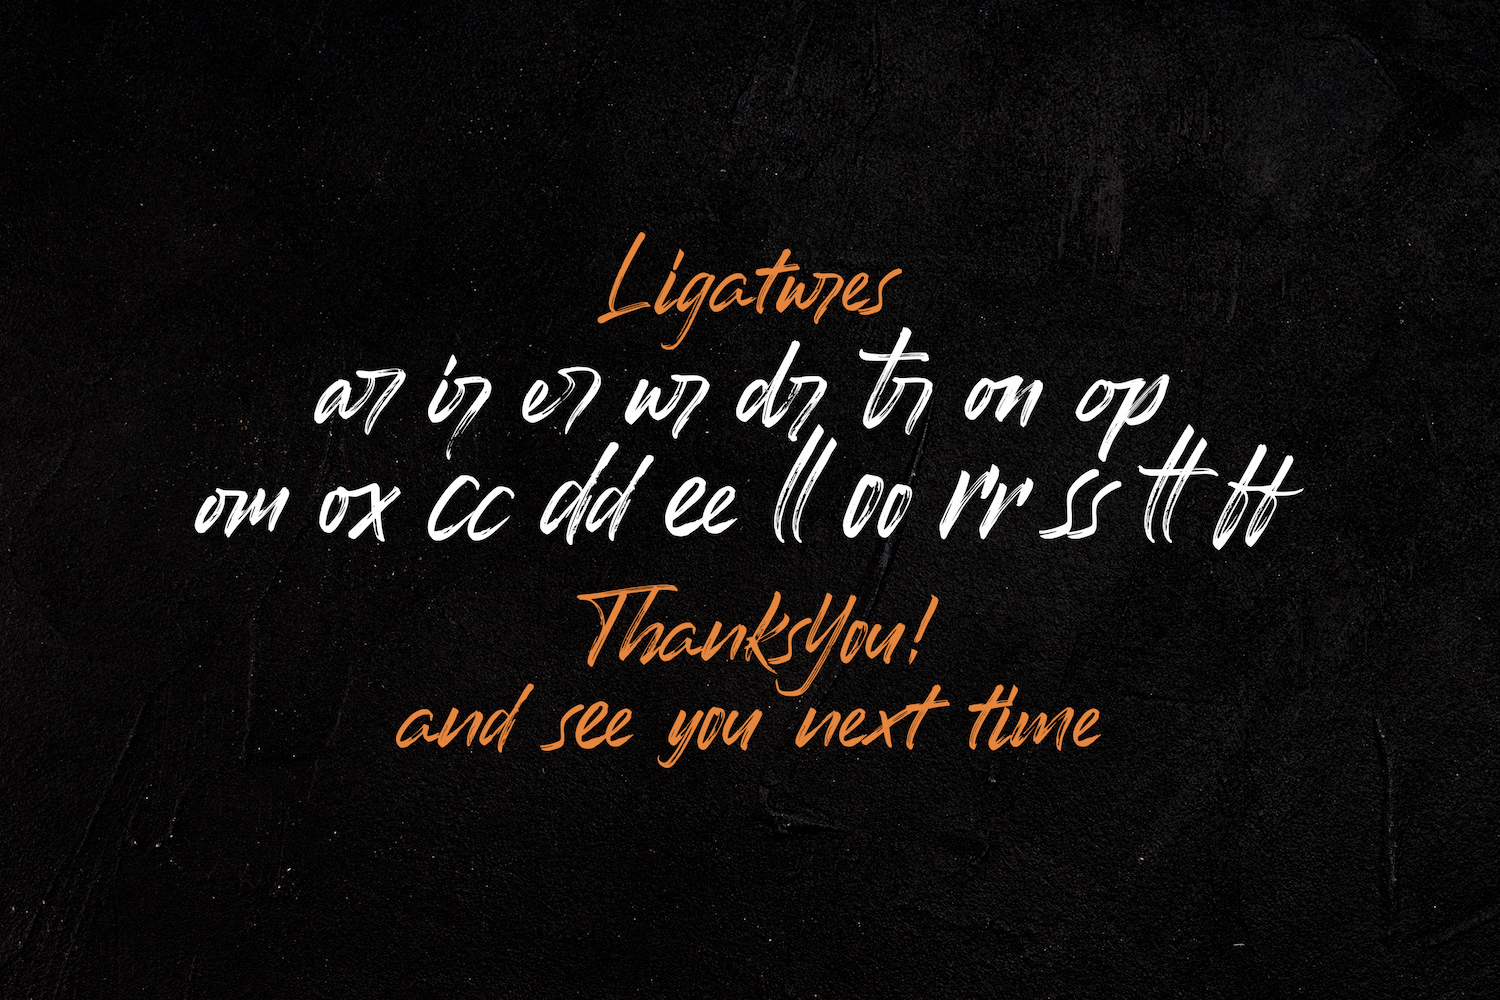 Ligatures
ar ir er ur dr tr on op
om ox cc dd ee ll oo rr ss tt ff
ThanksYou!
and see you next time